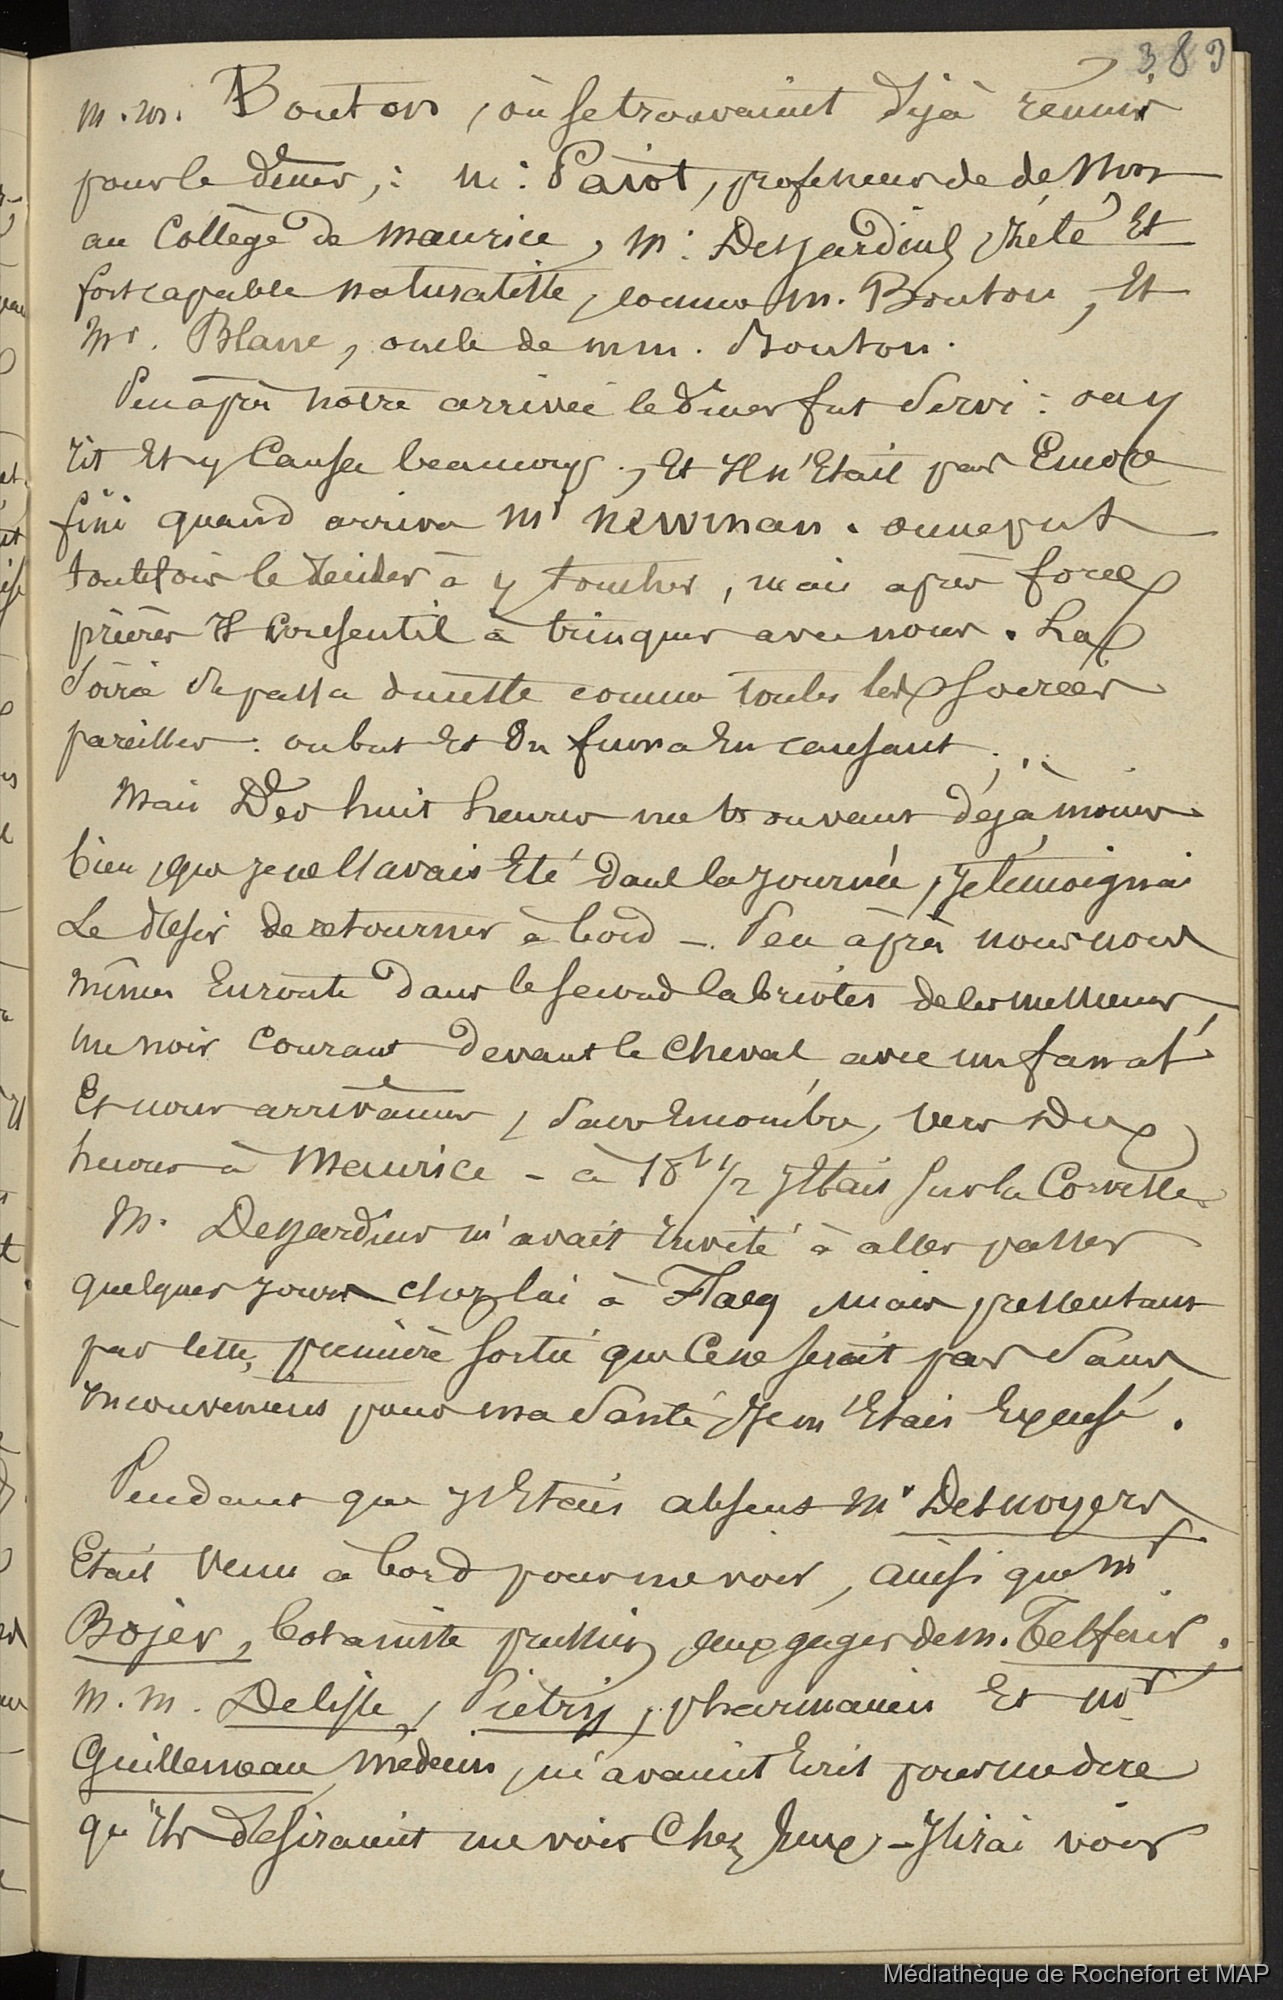 389
m.m. Bouton, où se trouvaient déjà réunis
pour le dîner, : M: Paiot, professeur de de
au Collège de maurice, M: Desjardins, zélé Et
fort capable naturaliste, comme m. Bouton, Et
Mr. Blanc, oncle de mm. Bouton.
Peu après notre arrivée le dîner fut Servi : on y
rit Et y Causa beaucoup, Et Il n'Etait pas Encore
fini quand arriva Mr newman. on ne put
toutefois le décider à y toucher, mais après force
prières Il Consentit à trinquer avec nous. La
Soirée se passa ensuite comme toutes les soirées
pareilles : on but Et On fuma En causant ...
Mais Dès huit heures me trouvant déjà moins
bien, que je ne l'avais Eté dans la journée, Je témoignai
Le désir de retourner à bord -. Peu après nous nous
mîmes En route dans le second cabriolet de ces messieurs,
un noir Courant devant le Cheval avec un fanal
Et nous arrivâmes, Sans Encombre, vers Dix
heures à Maurice - à 10h 1/2 J'Etais sur la Corvette.
M. Desjardins m'avait Invité à aller passer
quelques jours chez lui à Flacq, mais pressentant
par cette première Sortie que Ce ne serait pas Sans
Inconvénients pour ma Santé, Je m'Etais Excusé.
Pendant que J'Etais absent Mr Desnoyers
Etait Venu à bord pour me voir, ainsi que Mr
Bojer, botaniste prussien, aux gages de m. Telfair.
M. M. Delisse, Piétri, pharmacien Et Mr
Guillemeau Médecin, m'avaient Ecrit pour me dire
qu'Ils désiraient me voir Chez Eux - J'Irai voir
Médiathèque de Rochefort et MAP